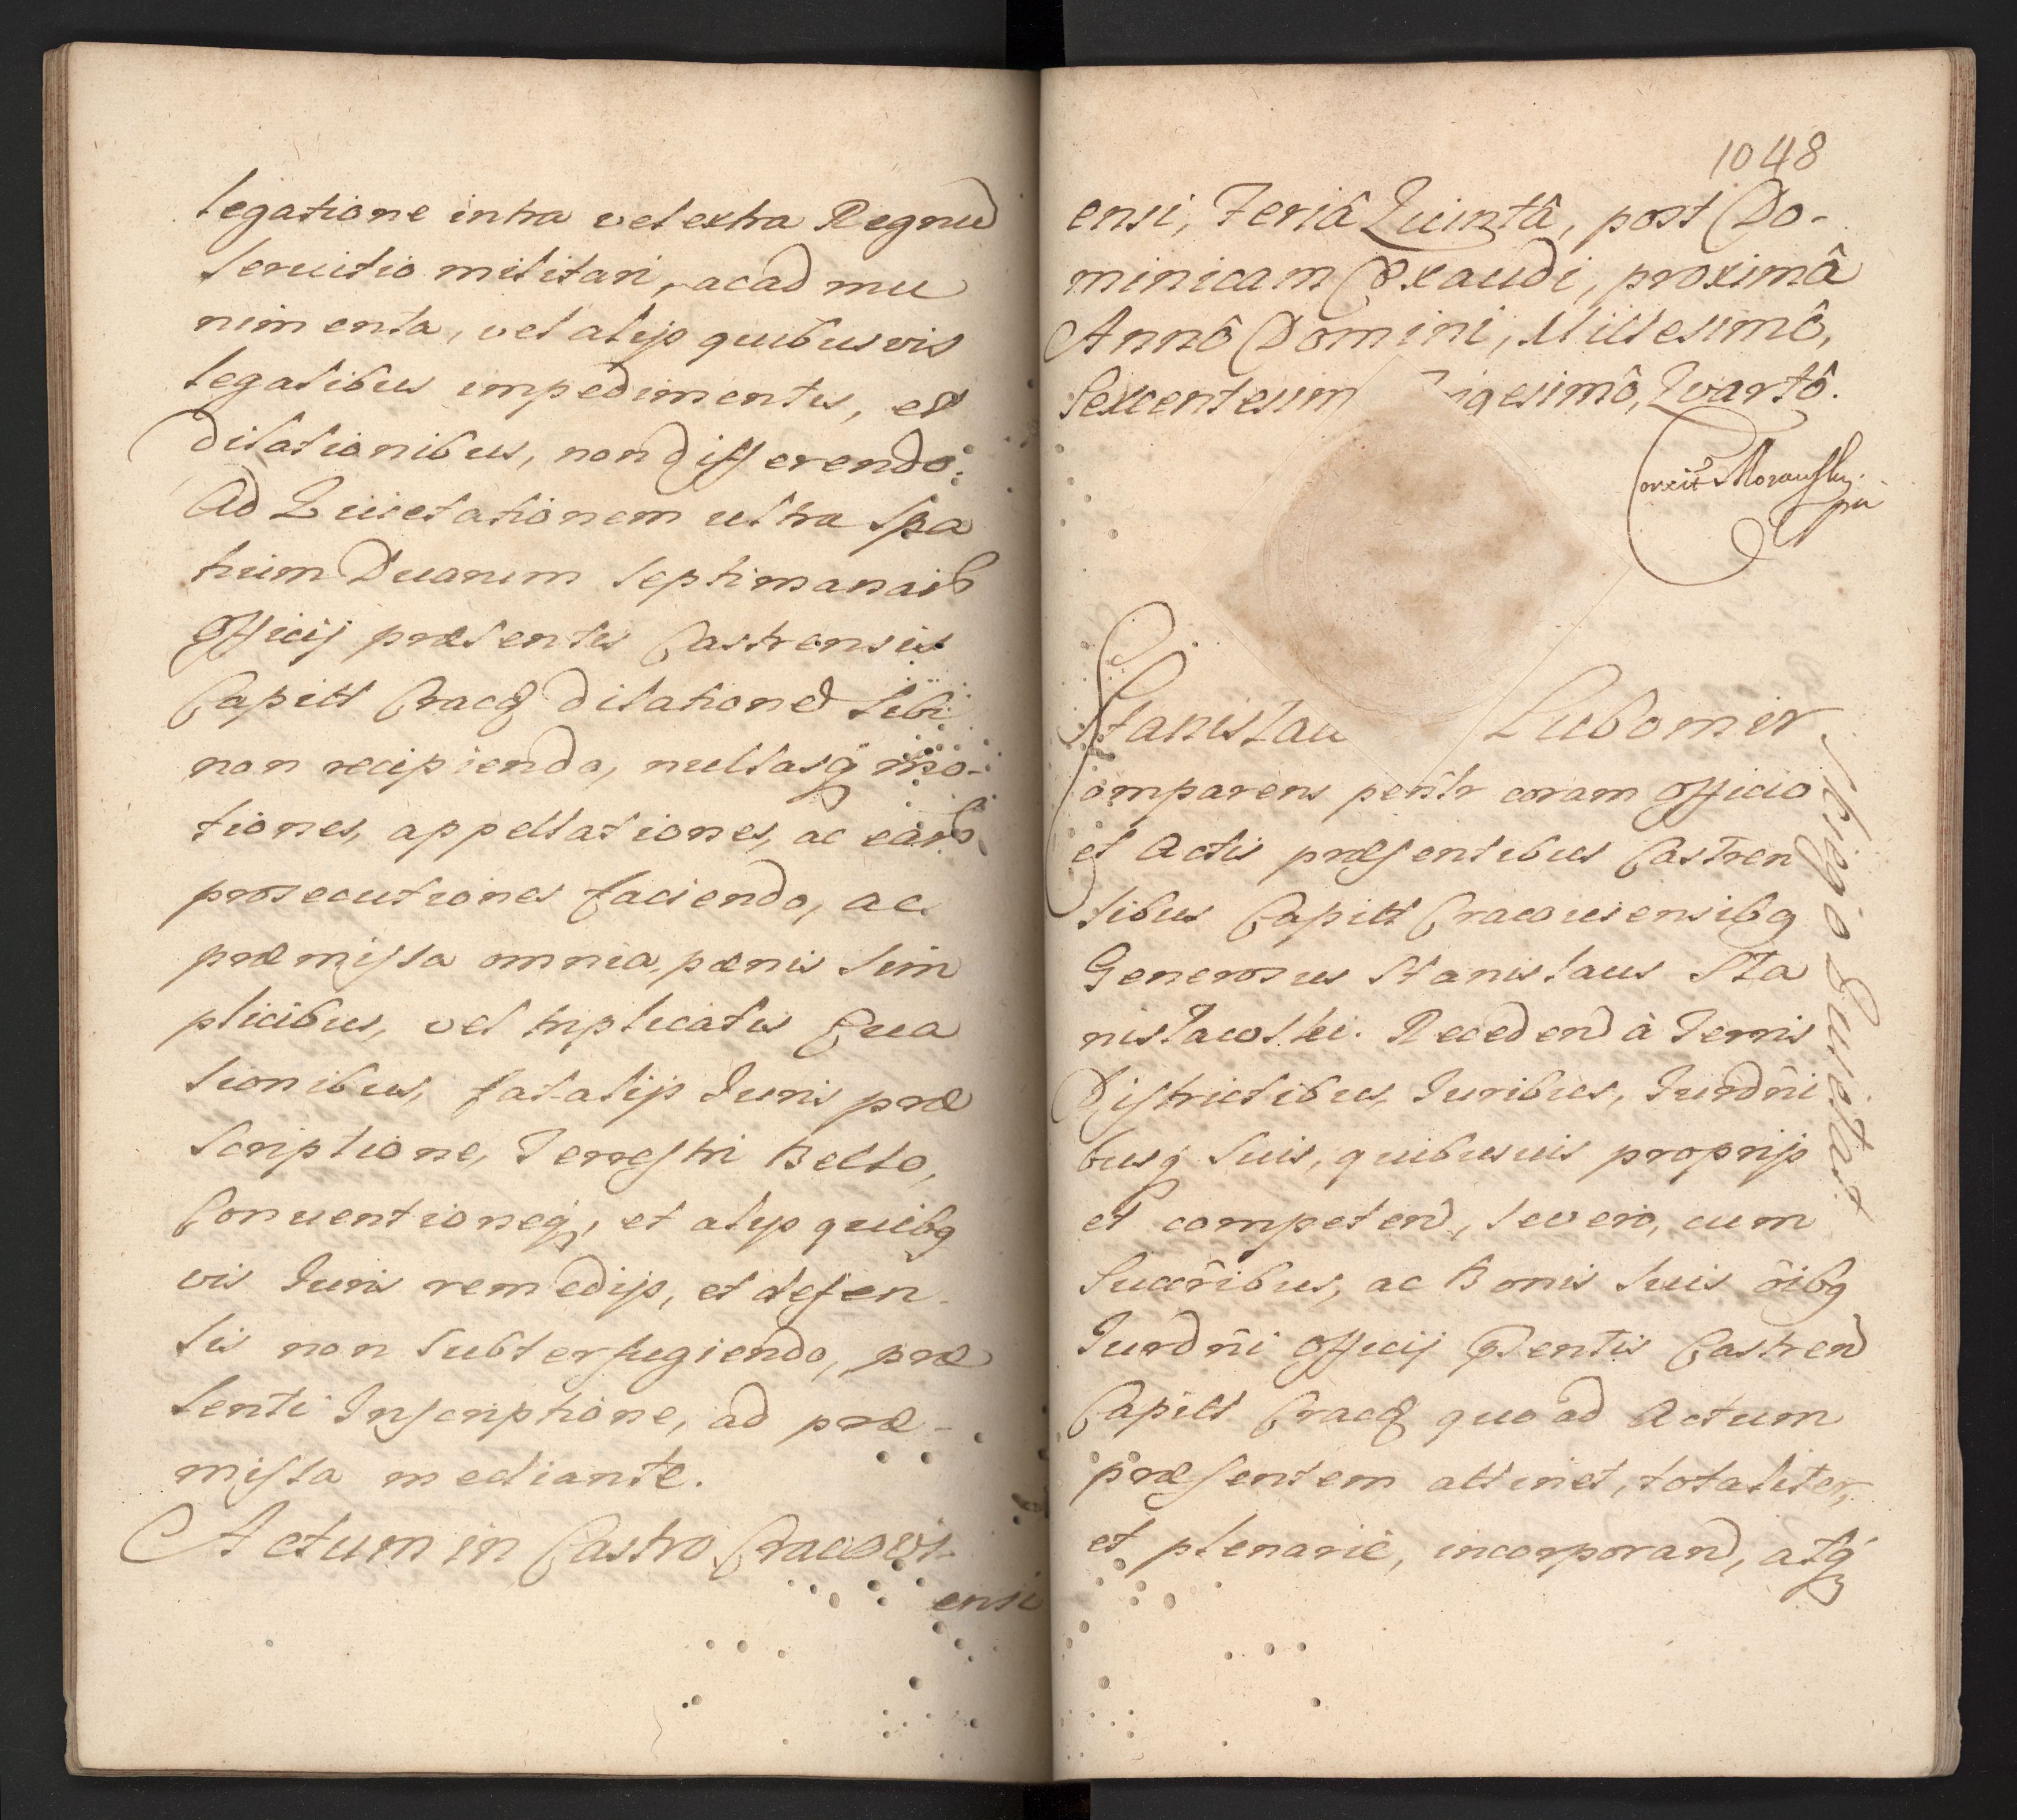 legatione intra vel extra Regnu
servitio militari, ac ad mu
nimenta, vel alijs quibusvis
legalibus impedimentis, et
dilationibus, non differendo.
Ad Quietationem ultra spa
tium Duarum septimanar
Officij præsentis Castrensis
Capitl Crac dilatione sibi
non recipiendo, nullasq mo-
tiones, appellationes, ac ear
prosecutiones faciendo, ac
præmissa omnia, pœnis sim
plicibus, vel triplicatis Eva
sionibus, fatalijs Iuris præ
scriptione, Terrestri Bello,
Conventioneq, et alijs quibq
vis Iuris remedijs, et defen
sis non subterfugiendo, præ
senti Inscriptione, ad præ-
missa mediante.
Actum in Castro Cracovi-
ensi
1048
ensi, Feriâ Quintâ, post Do-
minicam Exaudi, proximâ
Annô Domini, Millesimô,
Sexcentesim igesimô, Qvartô.
Stanislau Lubomir
skiego Quietat
Comparens psntr coram Officio
et Actis præsentibus Castren
sibus Capitl Cracoviensibq
Generosus Stanislaus Sta
nislawski. Recedend à Terris
Districtibus, Iuribus, Iurdni
busq suis, quibusvis proprijs
et competend, se vero, cum
Succribus, ac Bonis suis oibq
Iurdni Officij Psentis Castren
Capitl Crac quo ad Actum
præsentem attinet, totaliter,
et plenariè, incorporand, atq